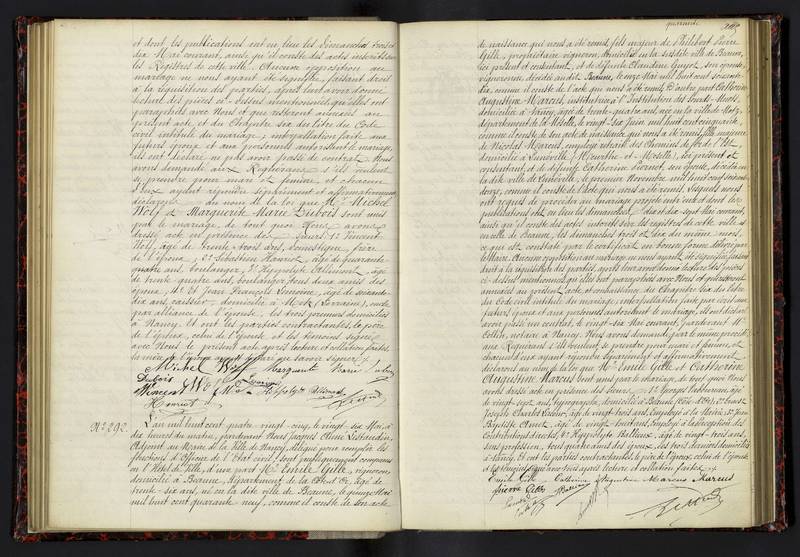 et dont les publications ont eu lieu les dimanches trois et
dix Mai courant, ainsi qu'il conste des actes inscrits sur
les Registres de cette ville. Aucune opposition au
mariage ne nous ayant été signifiée, faisant droit
à la réquisition des parties, après leur avoir donné
lecture des pièces ci-dessus mentionnées qu'elles ont
paraphées avec Nous et qui resteront annexées au
présent acte, et du Chapitre six du titre du Code
civil intitulé du mariage; interpellation faite aux
futurs époux et aux personnes autorisant le mariage,
ils ont déclaré ne pas avoir passé de contrat. Nous
avons demandé aux Requérans s'ils veulent
se prendre pour mari et femme, et chacun
d'eux ayant répondu séparément et affirmativement,
déclarons au nom de la loi que Mr Michel
Wolf et Marguerite Marie Dubois sont unis
par le mariage, de tout quoi Nous avons
dressé acte en présence des Sieurs 1º Vincent
Wolf, âgé de trente trois ans, domestique, frère
de l'époux; 2º Sébastien Henriot, âgé de quarante
quatre ans, boulanger, 3º Hippolyte Allimant, âgé
de trente quatre ans, boulanger, tous deux amis des
époux; 4º et Jean François Lemoine, âgé de soixante
dix ans, caissier, domicilié à Metz (Lorraine), oncle
par alliance de l'épouse, les trois premiers domiciliés
à Nancy. Et ont les parties contractantes, le père
de l'époux, celui de l'épouse, et les témoins signé
avec Nous le présent acte après lecture et collation faites,
la mère de l'époux ayant déclaré ne savoir signer.
Michel Wolf Marguerite Marie Dubois
Dubois
Vincent Wolf Hippolyte
Henriot
Nº 292.
L'an mil huit cent quatre-vingt-cinq, le vingt-six Mai, à
dix heures du matin, pardevant Nous Jacques
Adjoint au Maire de la Ville de Nancy, délégué pour remplir les
fonctions d'Officier de l'Etat civil, sont publiquement comparus
en l'Hôtel de Ville, d'une part Mr Emile Gille, vigneron,
domicilié à Beaune, département de la Côte d'Or, âgé de
trente-six ans, né en la dite ville de Beaune, le quinze Mai
mil huit cent quarante neuf, comme il conste de son acte
quarante
de naissance qui nous a été remis, fils majeur de Philibert Pierre
Gille, propriétaire vigneron, domicilié en la susdite ville de Beaune,
ici présent et consentant, et de défunte Claudine Guyot, son épouse,
vigneronne, décédée audit Beaune, le onze Mai mil huit cent soixante
dix, comme il conste de l'acte qui nous a été remis; D'autre part Catherine
Augustine Marcus, institutrice à l'Institution des Sourds-Muets,
domiciliée à Nancy, âgée de trente-quatre ans, née en la ville de Metz,
département de la Moselle, le vingt-six Juin mil huit cent cinquante,
comme il conste de son acte de naissance qui nous a été remis, fille majeure
de Nicolas Marcus, employé retraité des Chemins de fer de l'Est,
domicilié à Lunéville (Meurthe-et-Moselle), ici présent et
consentant, et de défunte Catherine Pierret, son épouse, décédée en
la dite ville de Lunéville, le premier Novembre mil huit cent soixante
douze, comme il conste de l'acte qui nous a été remis. Lesquels nous
ont requis de procéder au mariage projeté entr'eux et dont les
publications ont eu lieu les dimanches dix et dix-sept Mai courant,
ainsi qu'il conste des actes inscrits sur les registres de cette ville et
en celle de Beaune, les dimanches trois et dix du même mois,
ce qui est constaté par le certificat en bonne forme délivré par
le Maire. Aucune opposition au mariage ne nous ayant été signifiée, faisant
droit à la réquisition des parties, après leur avoir donné lecture des pièces
ci-dessus mentionnées qu'elles ont paraphées avec Nous et qui resteront
annexées au présent acte, et du Chapitre six du titre
du Code civil intitulé du mariage, interpellation faite aux
futurs époux et aux personnes autorisant le mariage, ils ont déclaré
avoir passé un contrat, le vingt-six Mai courant, pardevant Me
notaire à Nancy. Nous avons demandé par le même
aux Requérans s'ils veulent se prendre pour mari et femme, et
chacun d'eux ayant répondu séparément et affirmativement,
déclarons au nom de la loi que Mr Emile Gille et Catherine
Augustine Marcus sont unis par le mariage, de tout quoi Nous
avons dressé acte en présence des Sieurs 1º Georges
de vingt-sept ans, typographe, domicilié à Beaune (Côte d'Or), 2º
Joseph Charles âgé de vingt-trois ans, Employé à la Mairie, 3º Jean
Baptiste âgé de vingt-trois ans, Employé à la perception des
Contributions directes, 4º Hippolyte âgé de vingt-trois ans,
sans profession, tous quatre amis des époux, les trois derniers domiciliés
à Nancy. Et ont les parties contractantes, le père de l'époux, celui de l'épouse
et les témoins signé avec Nous après lecture et collation faites.
Emile Gille Catherine Augustine Marcus Marcus
Pierre Gille